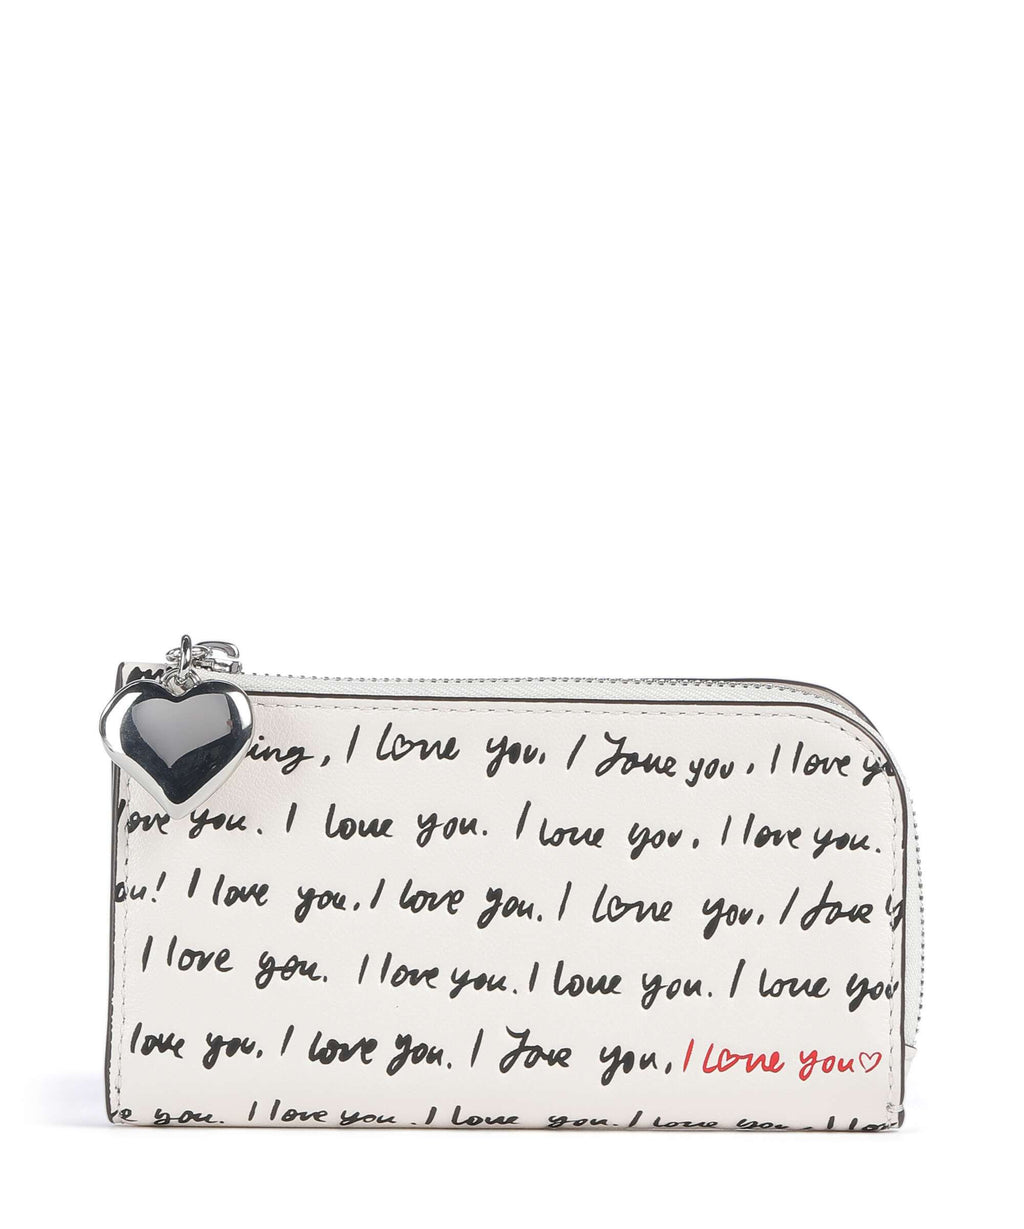 ing, I love you. I love you. I love y
love you. I love you. I love you. I love you.
ou! I love you. I love you. I love you. I love y
I love you. I love you. I love you. I love you
love you. I love you. I love you. I love you♡
e you. I love you. I love you. I love you. I lov